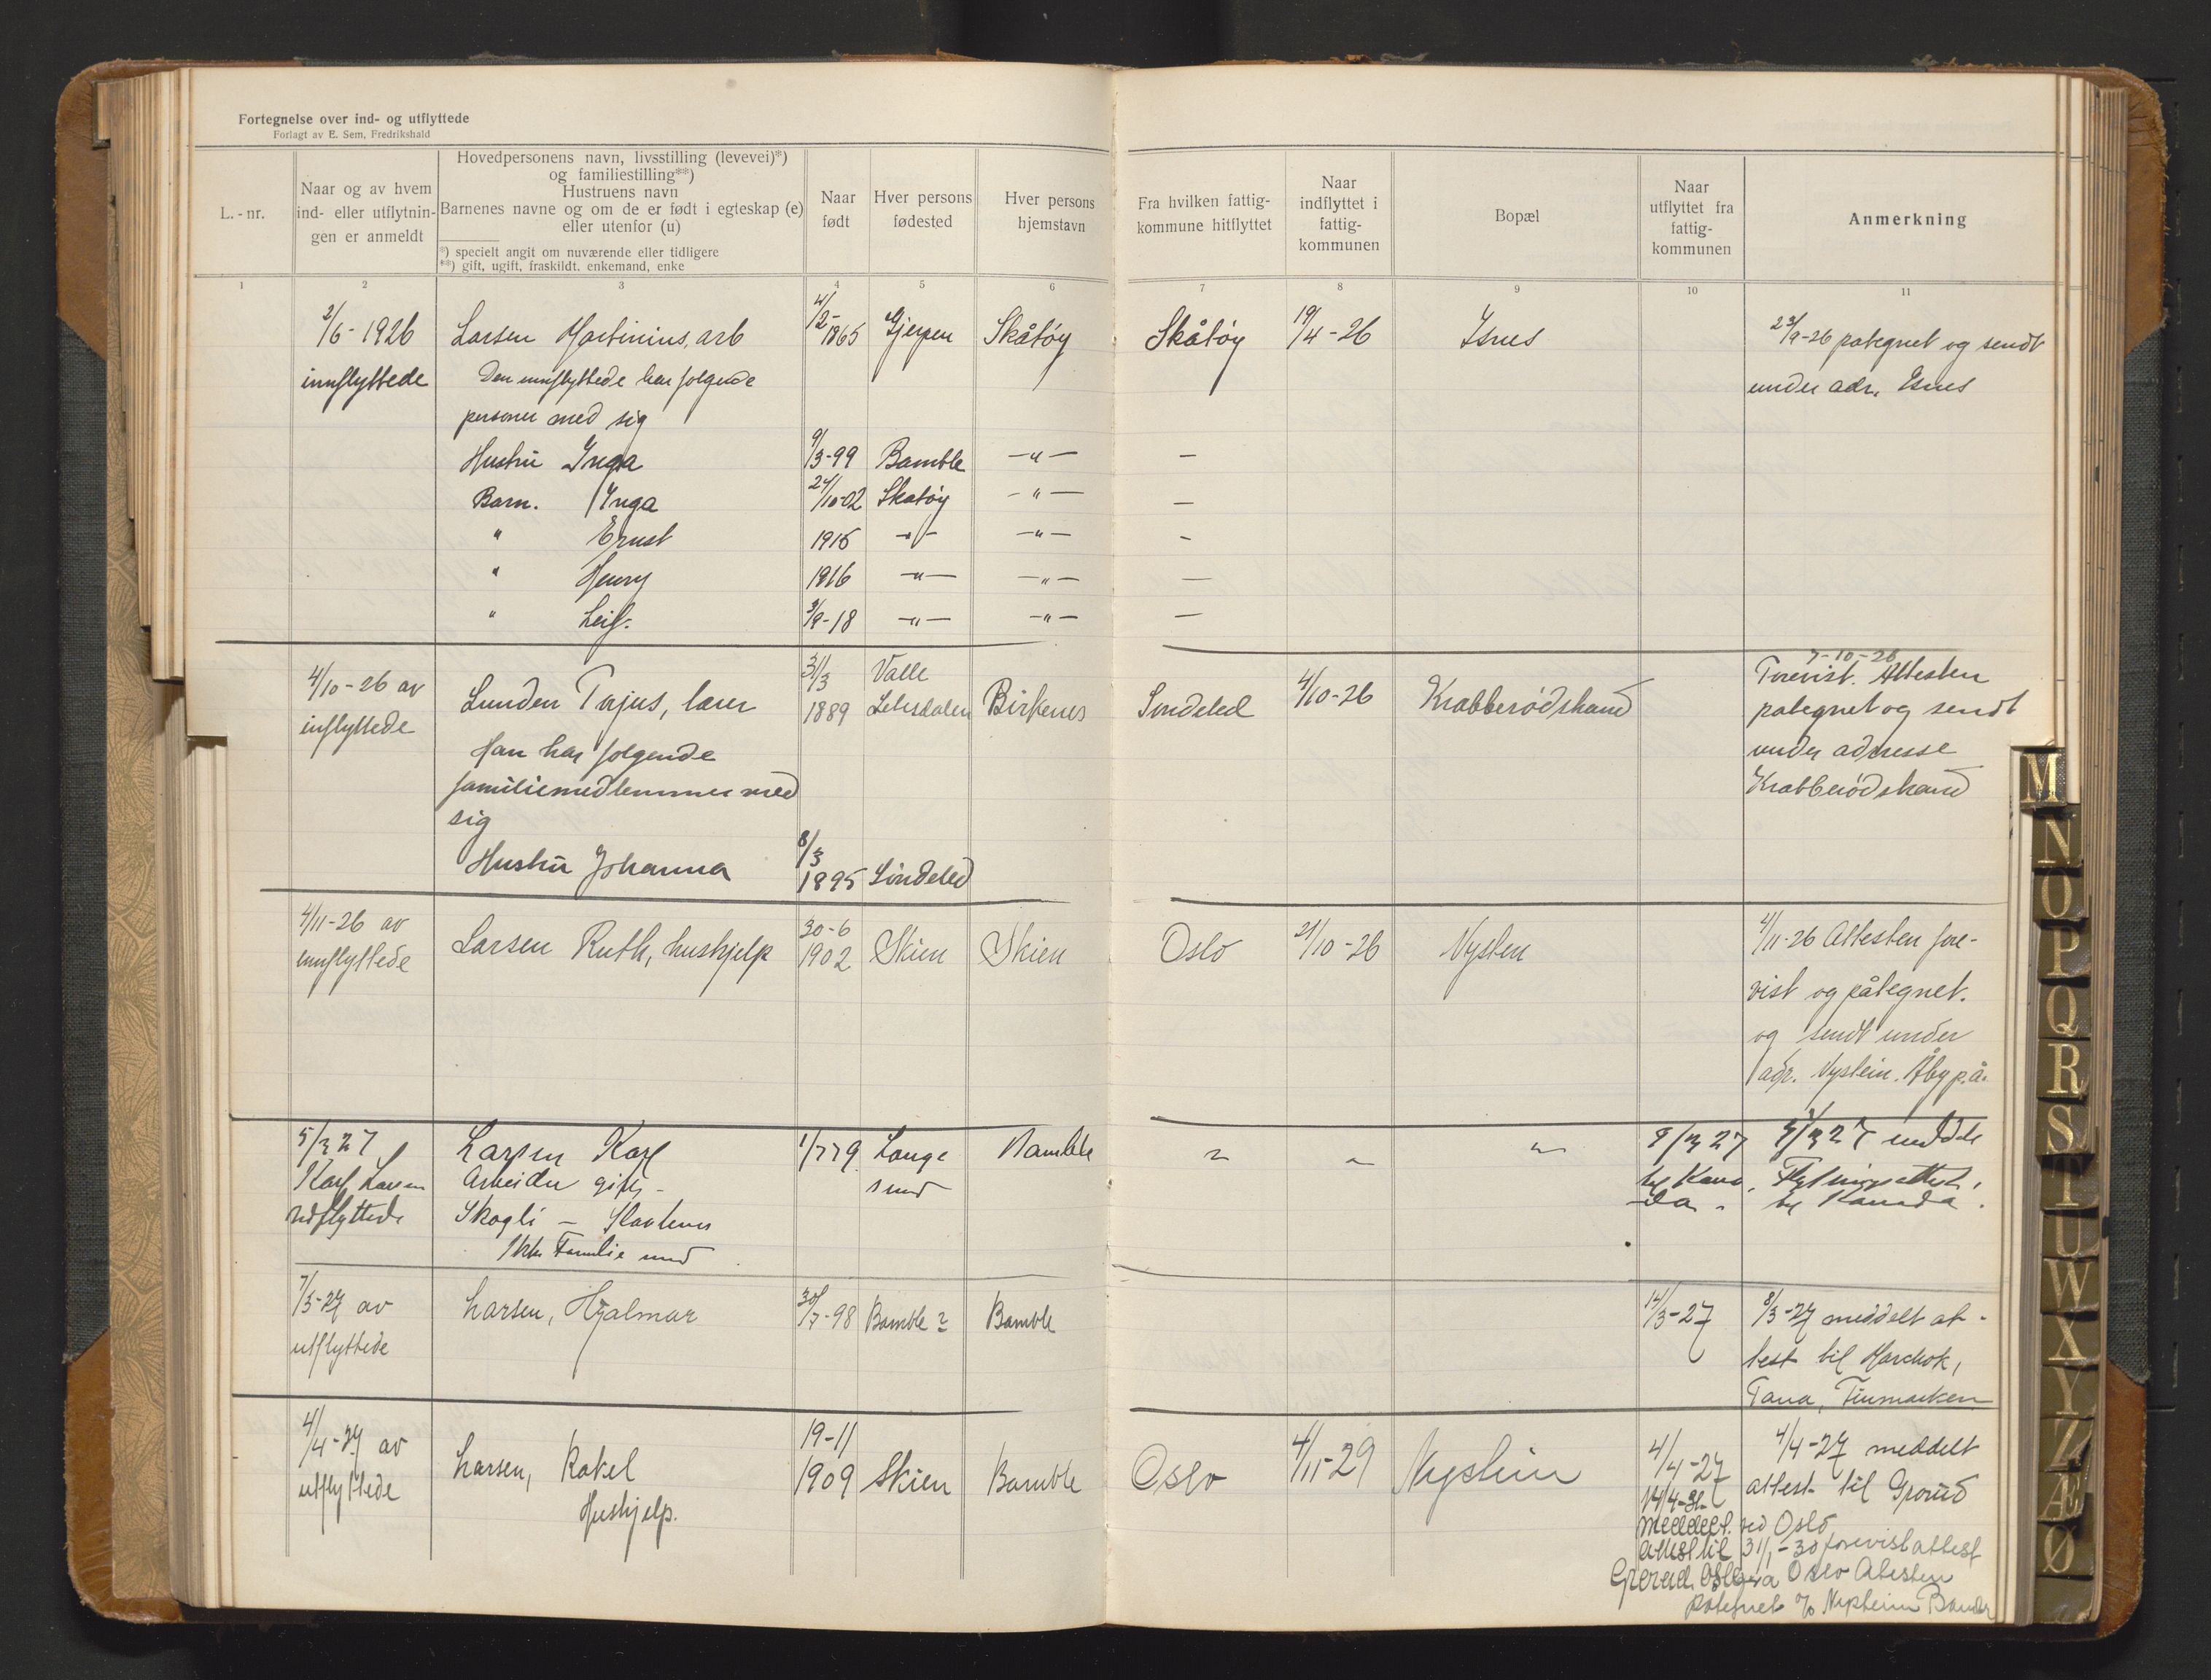 Fortegnelse over ind- og utflyttede
Forlagt av E. Sem, Fredrikshald
L.-nr.
Naar og av hvem
ind- eller utflytnin-
gen er anmeldt
Hovedpersonens navn, livsstilling (levevei)*)
og familiestilling**)
Hustruens navn
Barnenes navne og om de er født i egteskap (e)
eller utenfor (u)
*) specielt angit om nuværende eller tidligere
**) gift, ugift, fraskildt. enkemand, enke
Naar
født
Hver persons
fødested
Hver persons
hjemstavn
Fra hvilken fattig-
kommune hitflyttet
Naar
indflyttet i
fattig-
kommunen
Bopæl
Naar
utflyttet fra
fattig-
kommunen
Anmerkning
1 2 3 4 5 6 7 8 9 10 11
2/6-1926 Larsen Martinius, arb 4/2-1865 Gjerpen Skåtøy Skåtøy 19/4-26 Isnes 23/9-26 pategnet og sendt
innflyttede Den innflyttede har følgende under adr. Isnes
personer med sig
Hustru Inga 9/3-99 Bamble -"- -
Barn. Inga 24/10-02 Skatøy -"- -
" Ernst 1915 -"- -"- -
" Henry 1916 -"- -"- -
" Leif. 3/9-18 -"- -"- -
4/10-26 av Lunden Tarjus, lærer 31/3 1889 Valle Setesdalen Birkenes Søndeled 4/10-26 Krabberødstrand 7-10-26
Forevist. Attesten
innflyttede Han har følgende pategnet og sendt
familiemedlemmer med under adresse
sig Krabberødstrand
Hustru Johanna 8/3 1895 Søndeled
4/11-26 av Larsen Ruth, hushjelp 30-6 1902 Skien Skien Oslo 21/10-26 Nysten 4/11-26 Attesten fore-
innflyttede vist og påtegnet.
og sendt under
adr. Nystein. Åby p.å.
5/3 27 Larsen Karl 1/7 79 Lange Bamble " " " 9/3 27 9/3 27 meddelt
Karl Larsen Arbeider gift - sund til Kana Flytningsattest
utflyttede Skogli - Stathelle da. til Kanada.
Ikke Familie med
7/3-27 av Larsen, Hjalmar 30/7-98 Bamble? Bamble 14/3-27 8/3-27 meddelt at-
utflyttede test til Harchok,
Tana, Finmarken
4/4-27 av Larsen, Rakel 19-11 1909 Skien Bamble Oslo 4/11-29 Nystein 4/4-27 4/4-27 meddelt
utflyttede Hushjelp. attest til Grorud
14/4-31 ved Oslo
meddelt 31/1-30 forevist attest
attest til fra Oslo Atesten
Grorud Oslo patefnet
M
N
O
P
Q
R
S
T
U
W
X
Y
Z
Æ
Ø